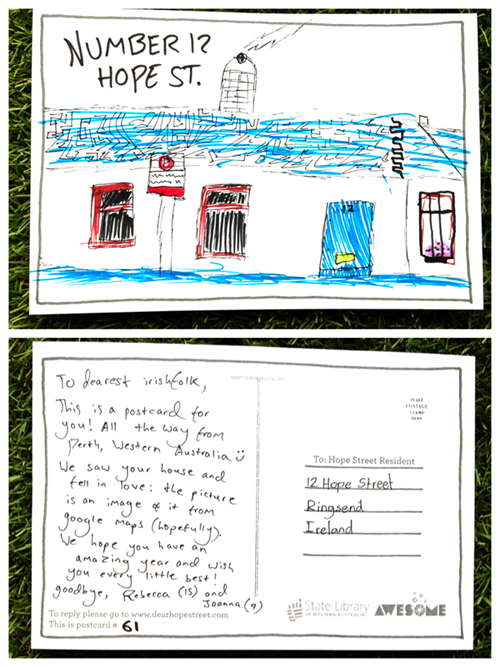 NUMBER 12
HOPE ST.
12
To dearest irishfolk,
This is a postcard for
you! All the way from
Perth, Western Australia
We saw your house and
fell in love: the picture
is an image of it from
google maps (hopefully).
We hope you have an
amazing year and wish
you every little best!
goodbye, Rebecca (15) and
Joanna (9)
To reply please go to www.dearhopestreet.com
This is postcard # 61
PLACE
POSTAGE
STAMP
HERE
To: Hope Street Resident
12 Hope Street
Ringsend
Ireland
State Library
OF WESTERN AUSTRALIA
AWESOME